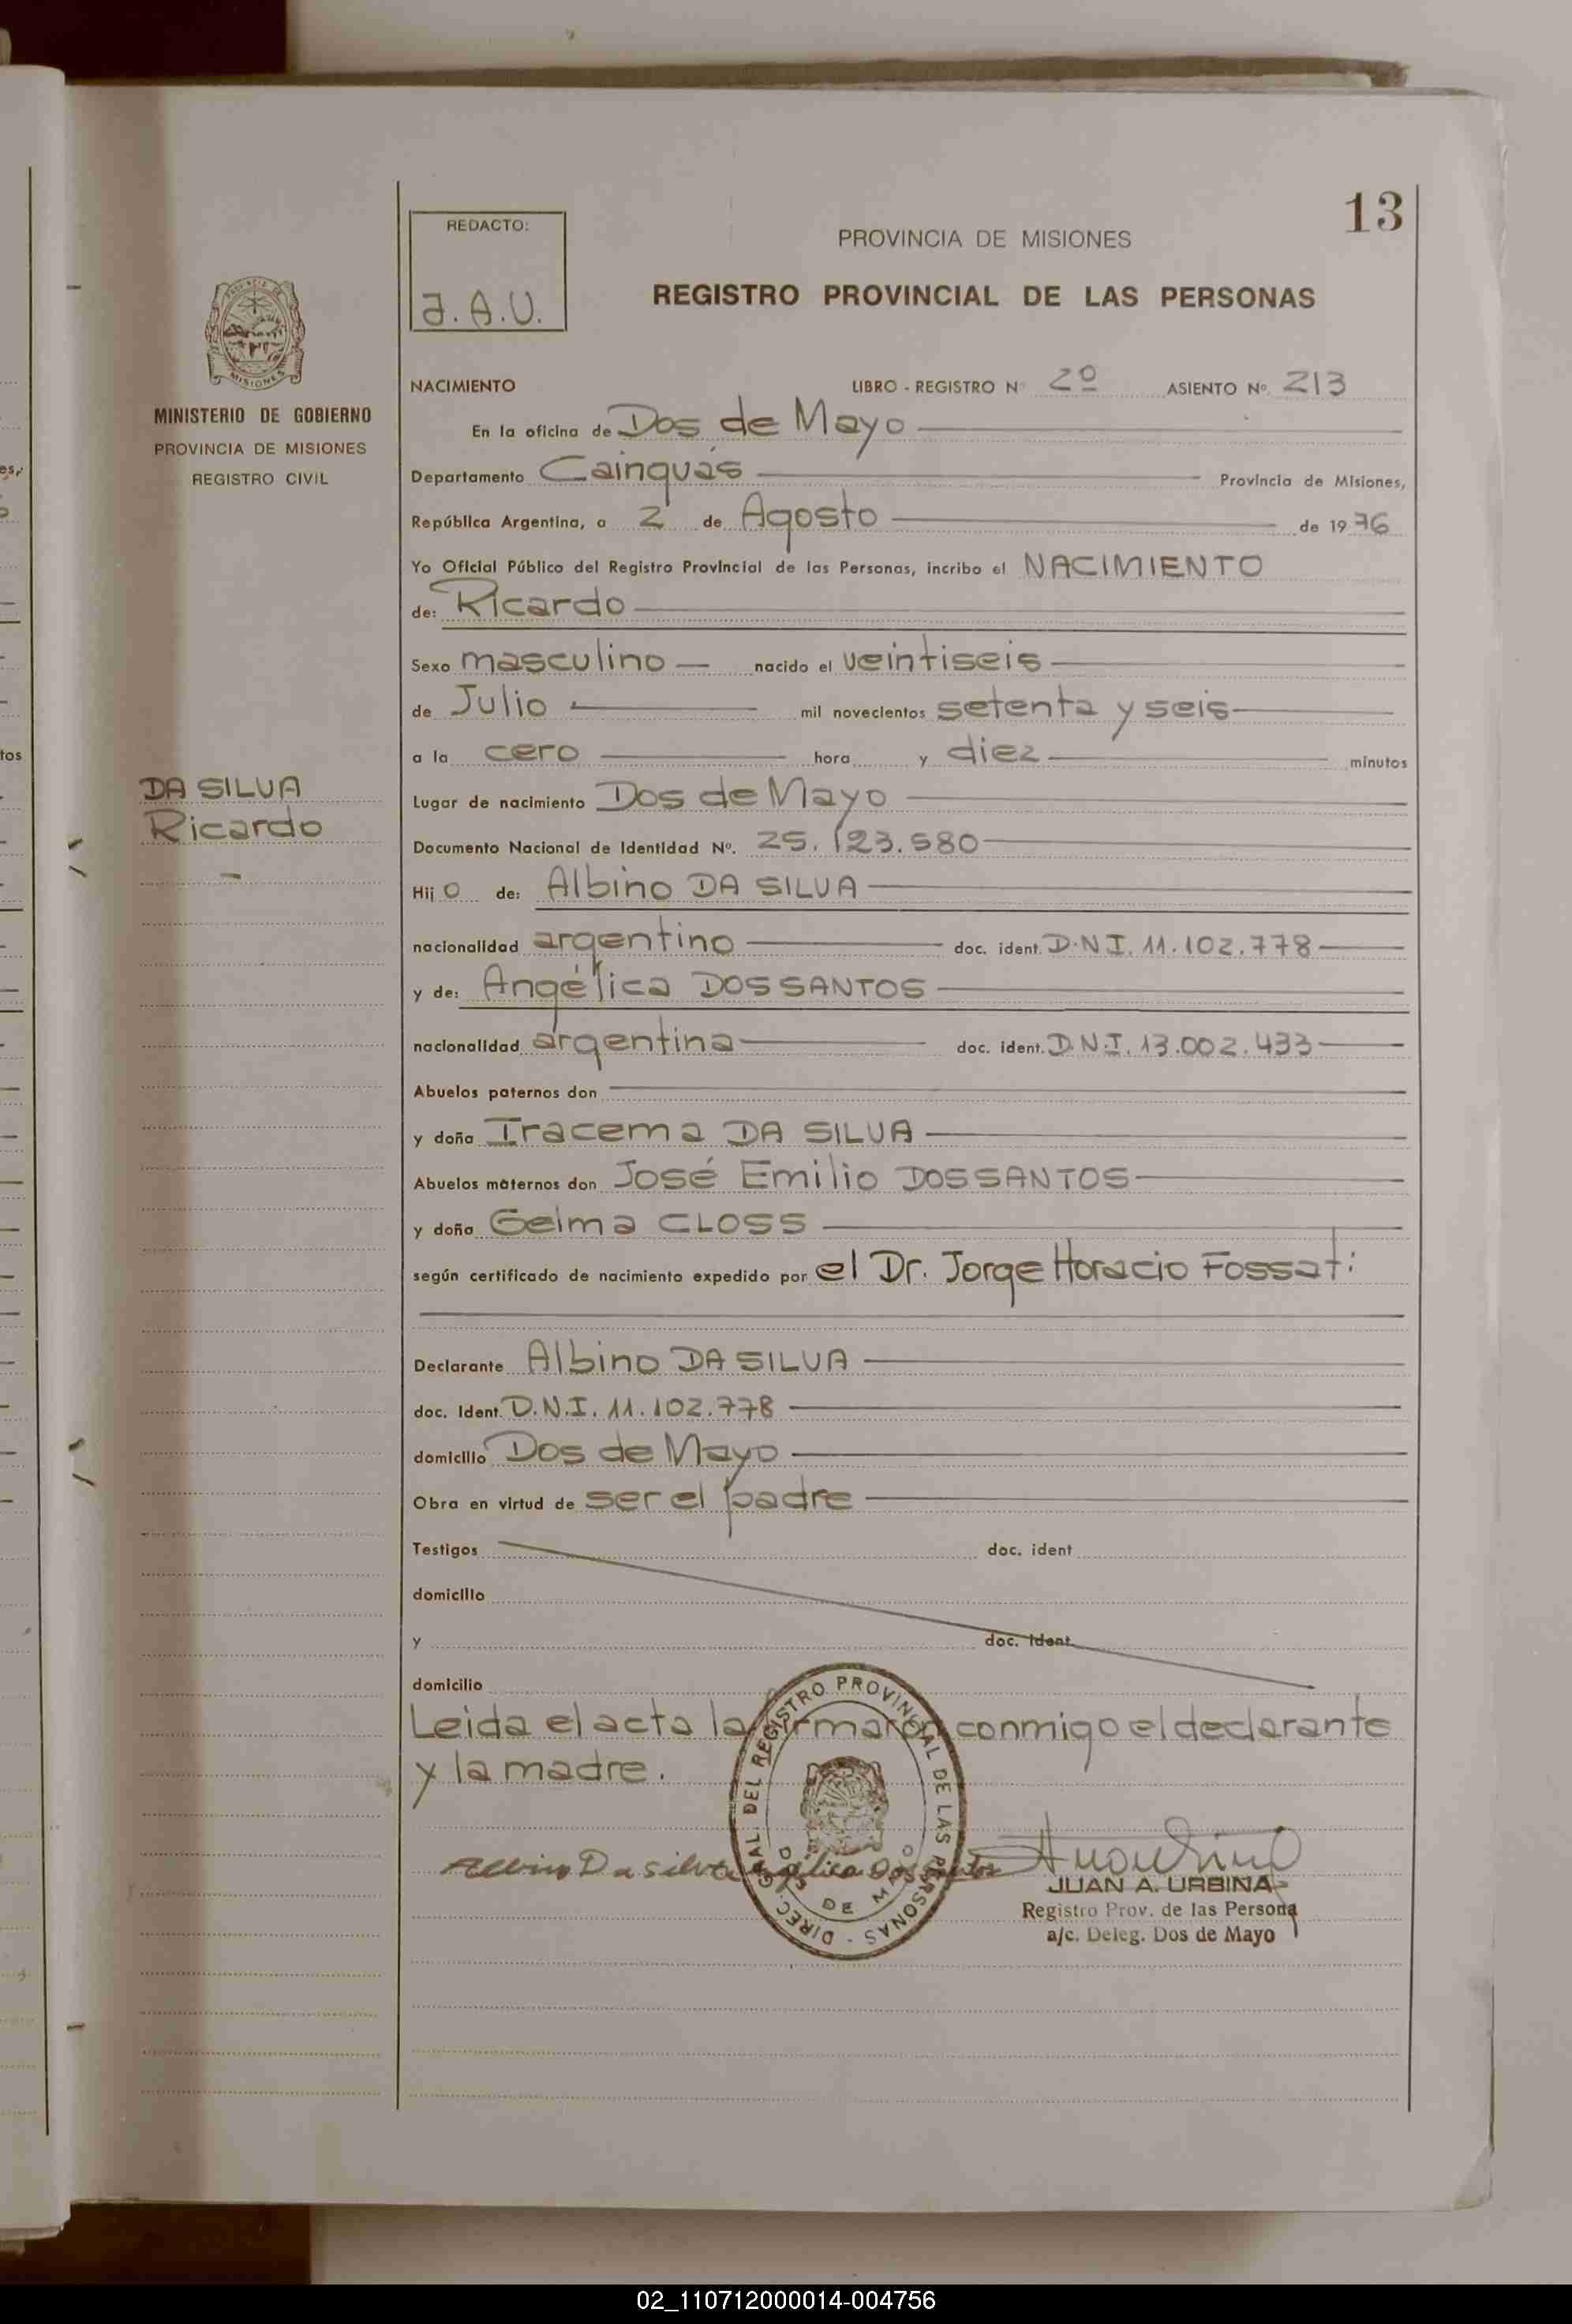 13
REDACTO:
J.A.U.
PROVINCIA DE MISIONES
REGISTRO PROVINCIAL DE LAS PERSONAS
MINISTERIO DE GOBIERNO
PROVINCIA DE MISIONES
REGISTRO CIVIL
NACIMIENTO LIBRO - REGISTRO Nº 2º ASIENTO Nº. 213
En la oficina de Dos de Mayo
Departamento Cainguás Provincia de Misiones,
República Argentina, a 2 de Agosto de 1976
Yo Oficial Público del Registro Provincial de las Personas, incribo el NACIMIENTO
de: Ricardo
Sexo masculino nacido el veintiseis
de Julio mil novecientos setenta y seis
a la cero hora y diez minutos
DA SILVA
Ricardo
Lugar de nacimiento Dos de Mayo
Documento Nacional de Identidad Nº. 25.123.580
Hijo de: Albino DA SILVA
nacionalidad argentino doc. ident. D.N.I. 11.102.778
y de: Angélica DOS SANTOS
nacionalidad argentina doc. ident. D.N.I. 13.002.433
Abuelos paternos don
y doña Iracema DA SILVA
Abuelos maternos don José Emilio DOS SANTOS
y doña Gelma CLOSS
según certificado de nacimiento expedido por el Dr. Jorge Horacio Fossati
Declarante Albino DA SILVA
doc. Ident. D.N.I. 11.102.778
domicilio Dos de Mayo
Obra en virtud de ser el padre
Testigos doc. ident
domicilio
y doc. Ident
domicilio
Leida el acta la firmaron conmigo el declarante
y la madre.
DIREC. GRAL. DEL REGISTRO PROVINCIAL DE LAS PERSONAS -
DOS DE MAYO
Albino Da silva Angelica Dos Santos
JUAN A. URBINA
Registro Prov. de las Persona
a/c. Deleg. Dos de Mayo
es,
tos
02_110712000014-004756